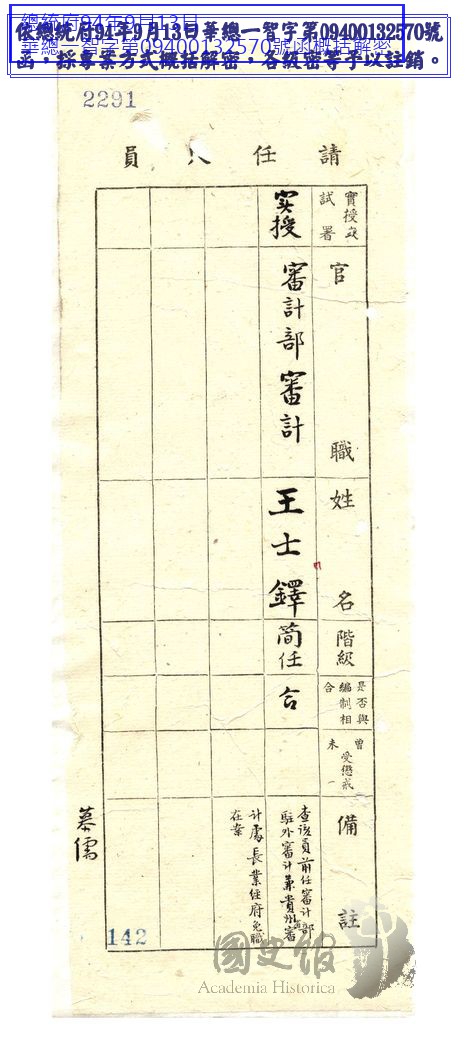 總統府94年9月13日
華總一智字第09400132570號函概括解密
依總統府94年9月13日華總一智字第09400132570號
函，採專案方式概括解密，各級密等予以註銷。
2291
請任人員
實授或試署
官職
姓名
階級
是否與編制相合
曾未受懲戒
備註
實授
審計部審計
王士鐸
簡任
合
查該員前任審計部
駐外審計兼貴州審
計處長業經府免職
在案
慕儒
142
國史館
Academia Historica